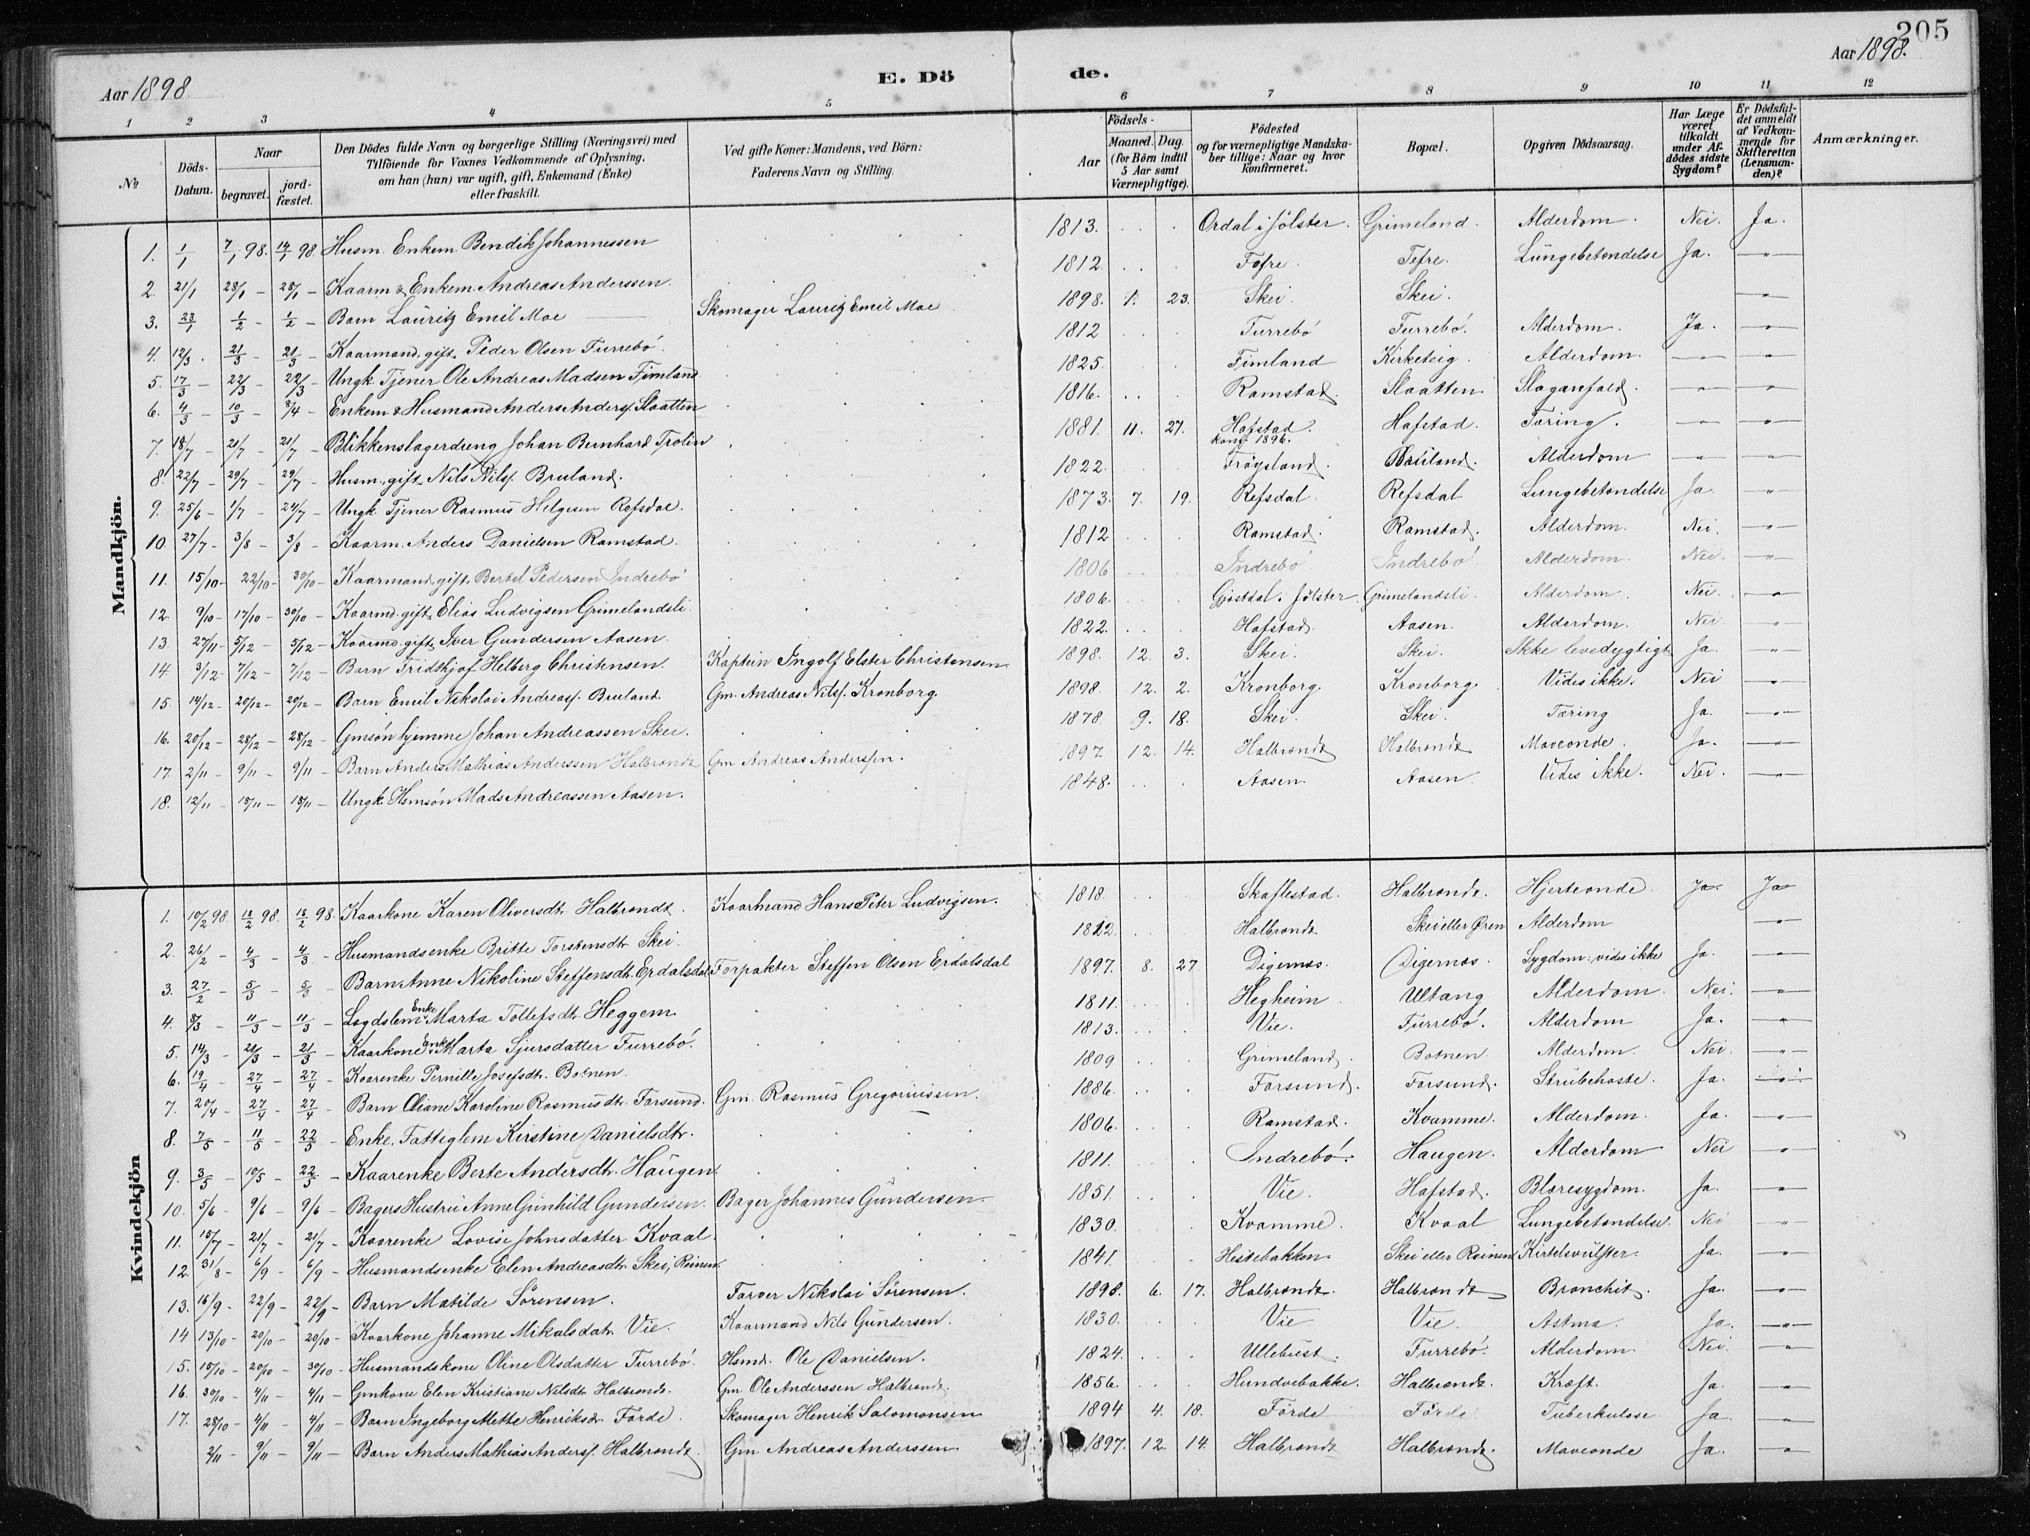 205
Aar 1898. E. Dö de. Aar 1898.
1 2 3 4 5 6 7 8 9 10 11 12
№ Döds-Datum. Naar begravet. jord-fæstet. Den Dödes fulde Navn og borgerlige Stilling (Næringsvei) med Tilföiende for Voxnes Vedkommende af Oplysning, om han (hun) var ugift, gift, Enkemand (Enke) eller fraskilt. Ved gifte Koner: Mandens, ved Börn: Faderens Navn og Stilling. Födsels- Aar Maaned. Dag. (for Börn indtil 5 Aar samt Værnepligtige). Födested og for værnepligtige Mandskaber tillige: Naar og hvor konfirmeret. Bopæl. Opgiven Dödsaarsag. Har Læge været tilkaldt under Afdödes sidste Sygdom? Er Dödsfaldet anmeldt af Vedkommende for Skifteretten (Lensmanden)? Anmærkninger.
Mandkjön.
1. 1/1 7/1 98. 14/1 98. Husm. Enkem. Bendik Johannessen 1813. Ordal i Jølster. Grimeland. Alderdom. Nei. Ja.
2. 21/1 28/1 – 28/1 – Kaarm & Enkem. Andreas Anderssen. 1812 Tefre. Tefre. Lungebetendelse Ja. –"–
3. 23/1 1/2 – 1/2 – Barn Lauritz Emil Moe Skomager Lauritz Emil Moe 1898. 1. 23. Skei. Skei. –"–
4. 12/3. 21/3 – 21/3 – Kaarmand, gift, Peder Olsen Furrebö. 1812 Furrebö Furrebö. Alderdom. Ja. –"–
5. 17/3 – 22/3 – 22/3 – Ungk. Tjener Ole Andreas Madsen Fimland 1825. Fimland Kirketeig. Alderdom. –"– –"–
6. 4/3 – 10/3 – 3/4 – Enkem & Husmand Anders Anders. Slaatten 1816. Ramstad. Slaatten. Slaganfald. –"– –"–
7. 18/7 – 21/7 – 21/7 – Blikkenslagerdreng Johan Bernhard Trolin 1881. 11. 27. Hafstad. konf. 1896. Hafstad. Tæring. –"– –"–
8. 22/7 – 29/7 – 29/7 – Husm. gift Nils Nils. Bruland. 1822. Frøysland. Bruland. Alderdom –"– –"–
9. 25/6 – 1/7 – 24/7 – Ungk. Tjener Rasmus Helgesen Refsdal. 1873. 7. 19. Refsdal. Refsdal Lungebetendelse Ja. –"–
10. 27/7 – 3/8 – 3/8 – Kaarm. Anders Danielsen Ramstad. 1812 Ramstad. Ramstad. Alderdom. Nei. –"–
11. 15/10 – 22/10 – 30/10 – Kaarmand, gift, Bertel Pedersen Indrebö 1806 Indrebö Indrebö. Alderdom. Nei. –"–
12. 9/10 – 17/10 – 30/10 – Kaarmd. gift, Elias Ludvigsen Grimelandsli. 1806. Gjøsdal i Jølster. Grimelandsli. Alderdom. Nei. –"–
13. 27/11 – 5/12 – 5/12 – Kaarmd. gift, Iver Gundersen Aasen. 1822. Hafstad. Aasen. Alderdom. Nei –"–
14. 3/12 – 7/12 – 7/12 – Barn Fridthjof Helberg Christensen. Kaptein Ingolf Elster Christensen 1898. 12. 3. Skei. Skei. Ikke levedygtigt Ja. –"–
15. 14/12 – 20/12 – 20/12 – Barn Emil Nikolai Andreas. Bruland. Gm. Andreas Nils. Kronborg. 1898. 12. 2. Kronborg. Kronborg. Vides ikke. Nei –"–
16. 20/12 – 28/12 – 28/12 – Gmsön hjemme Johan Andreassen Skei. 1878. 9. 18. Skei. Skei. Tæring Ja. –"–
17. 2/11 – 9/11 – 9/11 – Barn Anders Mathias Anderssen Halbrendt Gm Andreas Anderssen. 1897. 12. 14. Halbrendt Halbrendt Maveonde. Ja. –"–
18. 12/11 – 18/11 – 18/11 – Ungk. Hmsön Mads Andreassen Aasen. 1848. Aasen. Aasen. Vides ikke. Nei. –"–
Kvindekjön
1. 10/2 98. 18/2 98. 18/2 98. Kaarkone Karen Oliversdtr. Halbrendt. Kaarmand Hans Peter Ludvigsen. 1818. Skaflestad. Halbrendt. Hjerteonde. Ja. Ja
2. 26/2 – 4/3 – 4/3 – Husmandsenke Britte Torstensdtr. Skei. 1812. Halbrendt Skei eller Øren Alderdom –"–
3. 27/2 – 5/3 – 5/3 – Barn Anne Nikoline Steffensdtr. Erdalsdal Forpakter Steffen Olsen Erdalsdal 1897. 8. 27 Digernes. Digernes. Sygdom: vides ikke Ja. –"–
4. 8/3 – 11/3 – 11/3 – Lægdslem Enke Marta Tollefsdtr. Heggem 1811. Hegheim Ultang Alderdom. Nei. –"–
5. 14/3 – 21/3 – 21/3 – Kaarkone Enke Marta Sjursdatter Furrebö. 1813. Vie. Furrebö. Alderdom Ja. –"–
6. 19/4 – 27/4 – 27/4 – Kaarenke Pernille Josefsdtr. Botnen. 1809 Grimeland. Botnen. Alderdom. Nei. –"–
7. 20/4 – 27/4 – 27/4 – Barn Oliane Karoline Rasmusdtr. Farsund. Gm. Rasmus Gregoriussen. 1886. Farsund. Farsund. Strubehoste. Ja. –"–
8. 7/5 – 11/5 – 22/5 – Enke. Fattiglem Kirstine Danielsdtr. 1806. Ramstad. Kvamme. Alderdom. Ja. –"–
9. 3/5 – 10/5 – 22/5 – Kaarenke Berte Andersdtr. Haugen. 1811. Indrebö. Haugen. Alderdom Nei –"–
10. 5/6 – 9/6 – 9/6 – Bagers Hustru Anne Gunhild Gundersen. Bager Johannes Gundersen. 1851. Vie. Hafstad. Blæresygdom. Ja. –"–
11. 15/7 – 21/7 – 21/7 – Kaarenke Lovise Johnsdatter Kvaal 1830. Kvamme. Kvaal Lungebetendelse. Nei –"–
12. 31/8 – 6/9 – 6/9 – Husmandsenke Elen Andreasdtr. Skei, Reinen. 1841. Hestebakken Skei eller Reinen Kirtelsvulster. Ja. –"–
13. 16/9 – 22/9 – 22/9 – Barn Matilde Sörensen. Farver Nikolai Sörensen. 1898. 6. 17. Halbrendt. Halbrendt Bronchit. Ja. –"–
14 13/10 – 20/10 – 20/10 – Kaarkone Johanne Mikalsdatr. Vie. Kaarmand Nils Gundersen. 1830. Vie Vie. Astma. Ja. –"–
15. 15/10 – 20/10 – 30/10 – Husmandskone Oline Olsdatter Furrebö. Hsmd. Ole Danielsen. 1824. Ullebust. Furrebö. Alderdom. Nei –"–
16. 30/10 – 4/11 – 4/11 – Gmkone Elen Kristiane Nilsdtr Halbrendt. Gm Ole Anderssen Halbrendt. 1856. Hundvebakke. Halbrendt. Kræft. Ja. –"–
17. 28/10 – 4/11 – 4/11 – Barn Ingeborg Mette Henriksdr. Förde. Skomager Henrik Salomonsen 1894 4. 18. Förde Förde Tuberkulose Ja –"–
2/11 – 9/11 – 9/11 – Barn Anders Mathias Anders. Halbrendt. Gm Andreas Anderssen. 1897. 12. 14. Halbrendt Halbrendt. Maveonde Ja. –"–